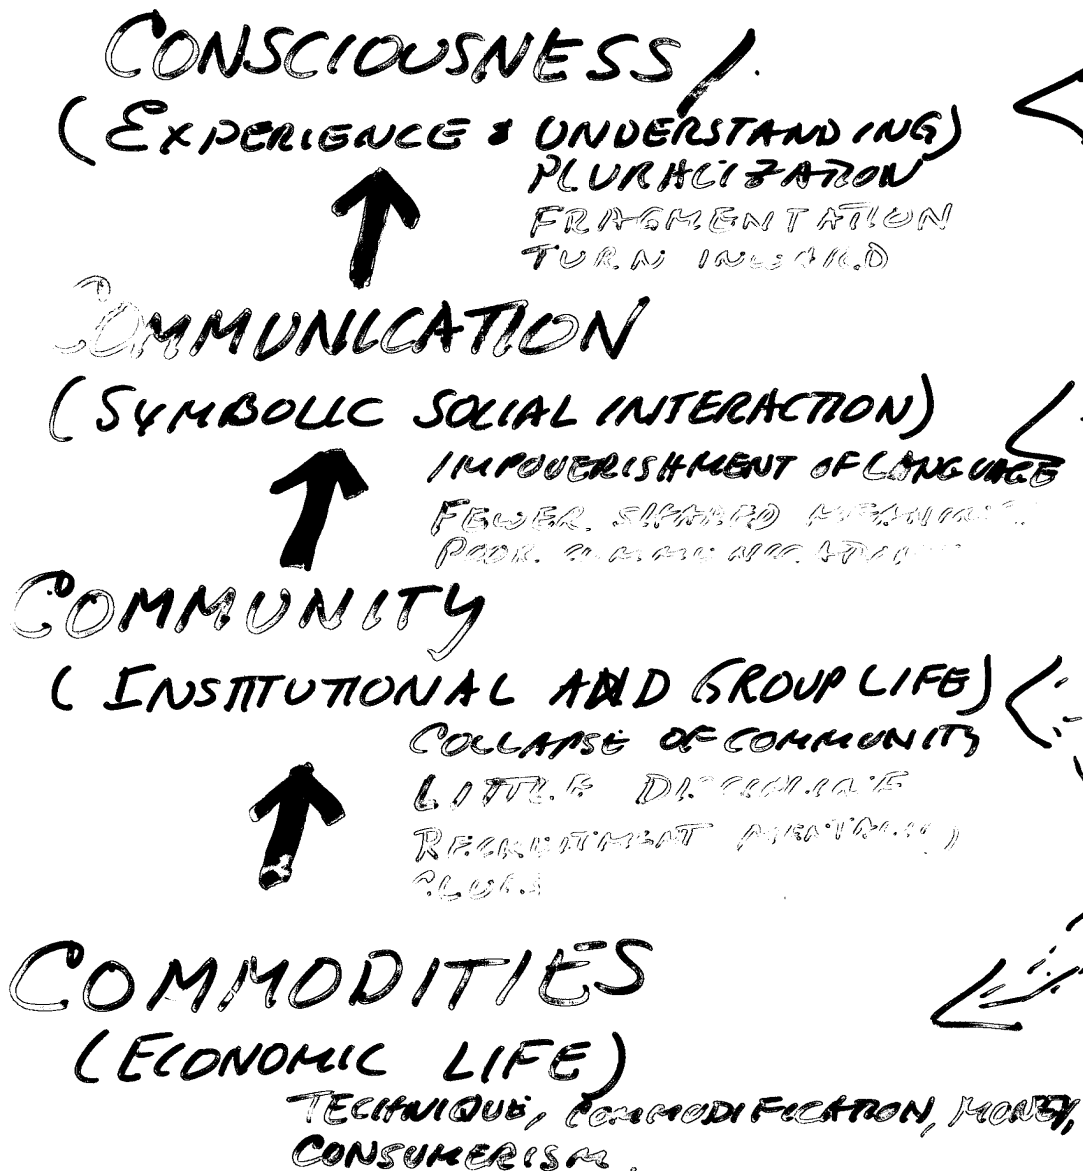 CONSCIOUSNESS
(EXPERIENCE & UNDERSTANDING)
PLURALIZATION
FRAGMENTATION
TURN INWARD
COMMUNICATION
(SYMBOLIC SOCIAL INTERACTION)
IMPOVERISHMENT OF LANGUAGE
FEWER SHARED MEANINGS
POOR COMMUNICATION
COMMUNITY
(INSTITUTIONAL AND GROUP LIFE)
COLLAPSE OF COMMUNITY
LITTLE DISCIPLINE
RECRUITMENT MENTALITY
COMMODITIES
(ECONOMIC LIFE)
TECHNIQUE, COMMODIFICATION, MONEY,
CONSUMERISM.